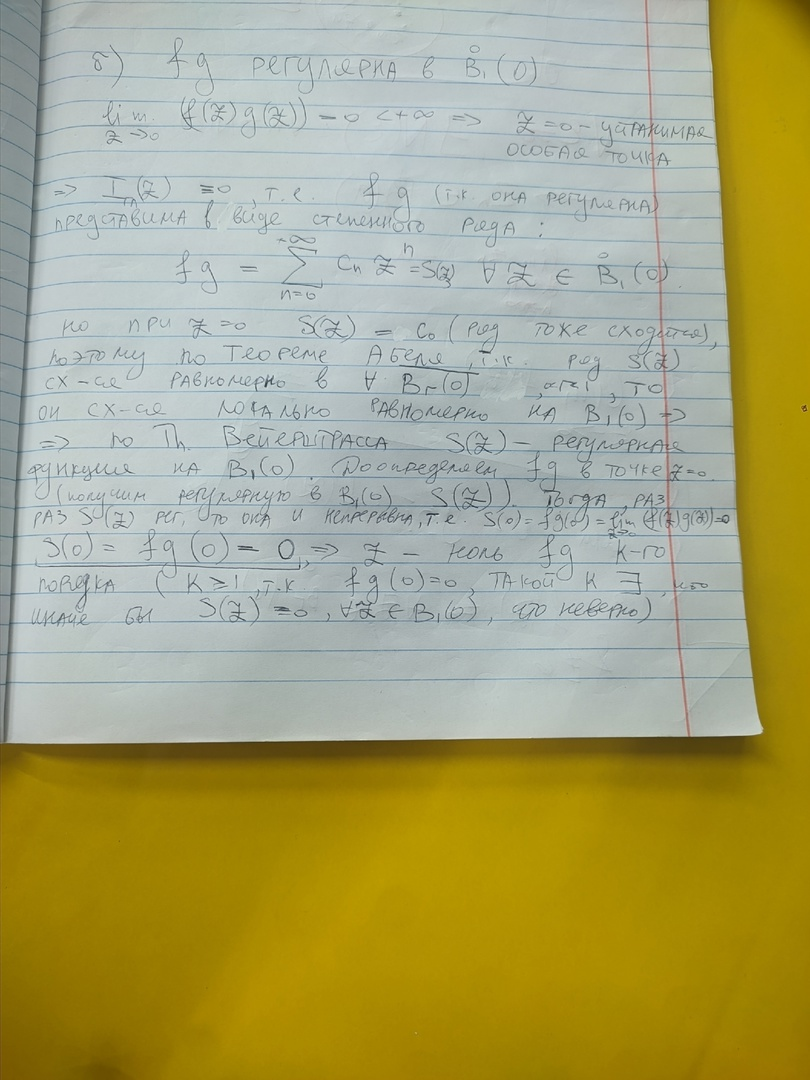 б) fg регулярна в B̊₁(0)
lim z→0 (f(z)g(z)) = 0 < +∞ => z=0 – устранимая особая точка
=> I гл (z) ≡ 0, т.е. fg (т.к. она регулярна)
представима в виде степенного ряда:
fg = ∑ n=0 +∞ cₙ zⁿ = S(z) ∀ z ∈ B̊₁(0).
но при z=0 S(z) = c₀ (ряд тоже сходится),
поэтому по Теореме Абеля, т.к. ряд S(z)
сх-ся равномерно в ∀ Br(0), 0<r<1, то
он сх-ся локально равномерно на B₁(0) =>
=> по Th. Вейерштрасса S(z) – регулярная
функция на B₁(0). Доопределяем fg в точке z=0.
(получим регулярную в B₁(0) S(z)). Тогда, раз
раз S(z) рег, то она и непрерывна, т.е. S(0) = fg(0) = lim z→0 (f(z)g(z)) = 0
S(0) = fg(0) = 0, => z – ноль fg k-го
порядка (k ≥ 1, т.к fg(0)=0, такой k ∃, ибо
иначе бы S(z) ≡ 0, ∀z ∈ B₁(0), что неверно)